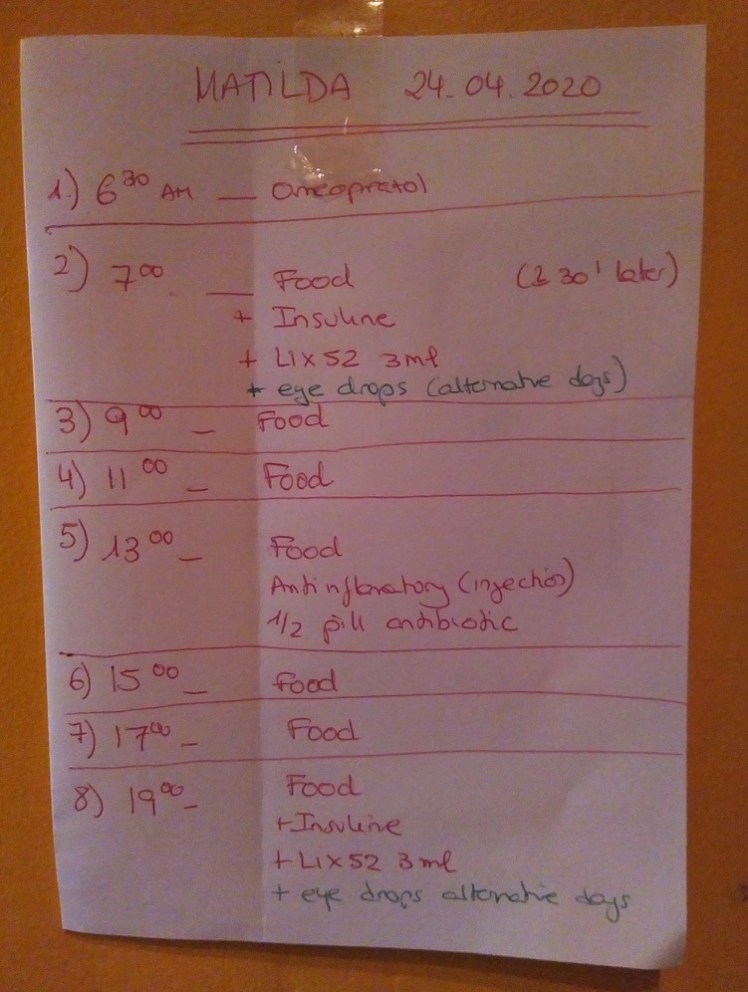 MATILDA 24.04.2020
1.) 6 30 AM — Omeopratol
2) 7 00 — Food (± 30' later)
+ Insuline
+ LIX52 3ml
+ eye drops (alternative days)
3) 9 00 — Food
4) 11 00 — Food
5) 13 00 — Food
Antinflamatory (injection)
1/2 pill antibiotic
6) 15 00 — Food
7) 17 00 — Food
8) 19 00 — Food
+ Insuline
+ LIX52 3ml
+ eye drops alternative days